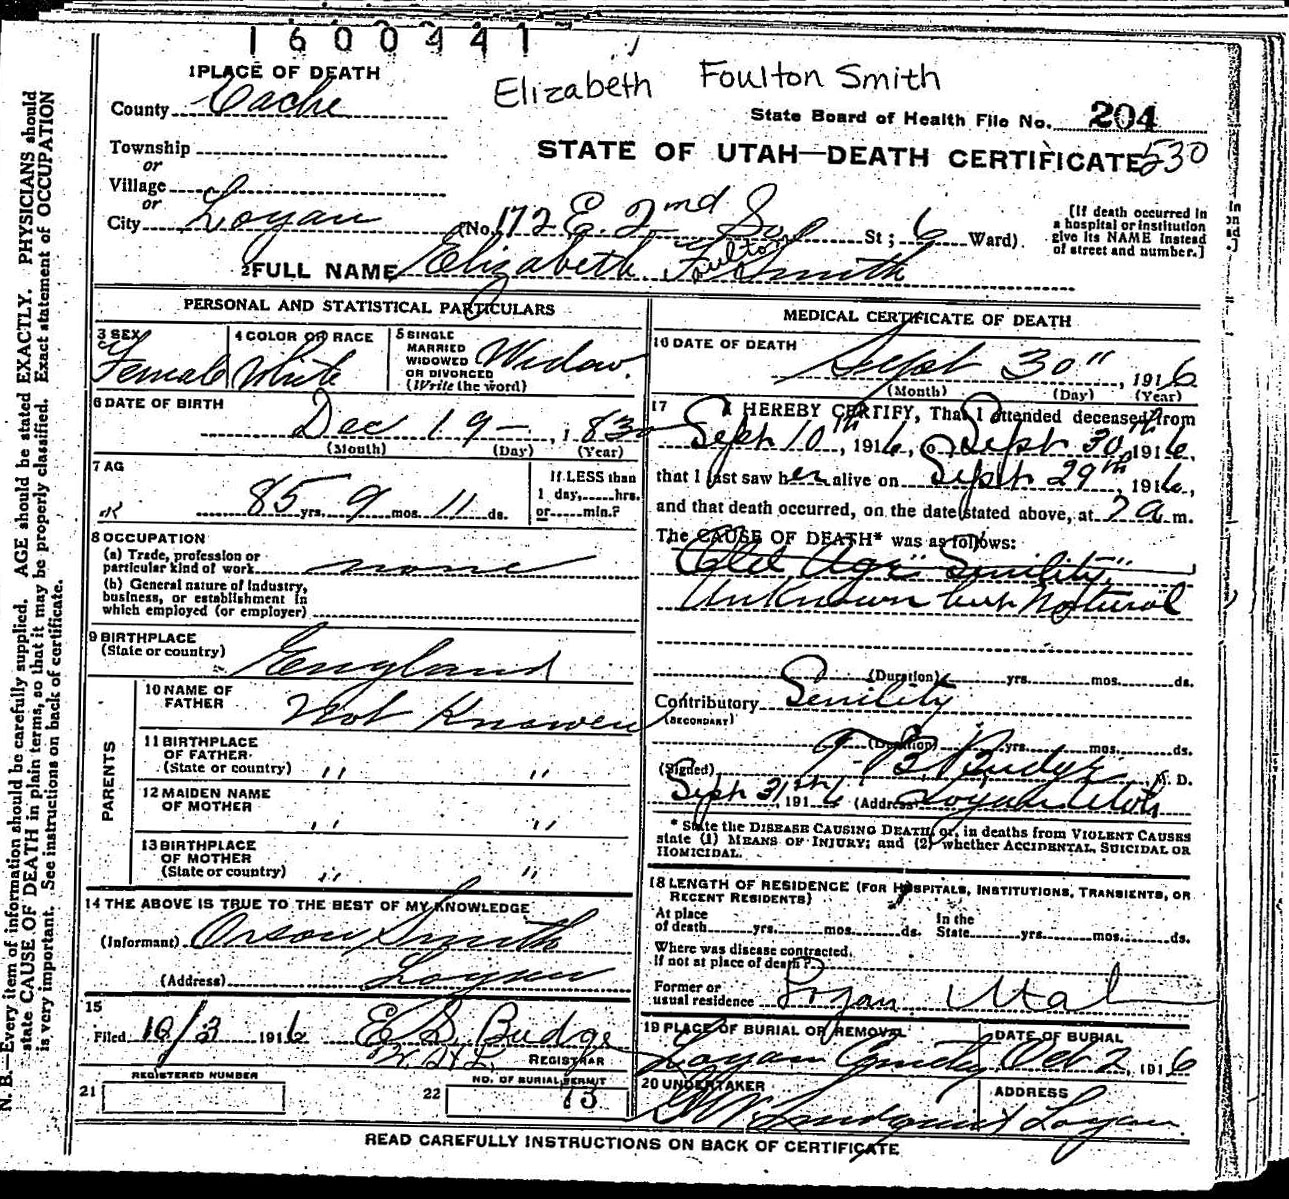 1600441
Elizabeth Foulton Smith
1 PLACE OF DEATH
County Cache
State Board of Health File No. 204
Township
STATE OF UTAH—DEATH CERTIFICATE 530
or
Village
or
City Logan (No. 172 E. 2nd So St; 6 Ward)
[If death occurred in a hospital or institution give its NAME instead of street and number.]
2 FULL NAME Elizabeth Foulton Smith
PERSONAL AND STATISTICAL PARTICULARS
3 SEX Female
4 COLOR OR RACE White
5 SINGLE MARRIED WIDOWED OR DIVORCED (Write the word) Widow.
6 DATE OF BIRTH
Dec 19 – , 1830
(Month) (Day) (Year)
7 AG
85 yrs. 9 mos. 11 ds.
If LESS than 1 day, hrs. or min.?
8 OCCUPATION
(a) Trade, profession or particular kind of work none
(b) General nature of Industry, business, or establishment in which employed (or employer)
9 BIRTHPLACE (State or country) England
PARENTS
10 NAME OF FATHER Not Knowen
11 BIRTHPLACE OF FATHER (State or country) " "
12 MAIDEN NAME OF MOTHER " "
13 BIRTHPLACE OF MOTHER (State or country) " "
14 THE ABOVE IS TRUE TO THE BEST OF MY KNOWLEDGE
(Informant) Orson Smith
(Address) Logan
15
Filed 10/3 1916 E. S. Budge
REGISTRAR
REGISTERED NUMBER
21
NO. OF BURIAL PERMIT
22 73
MEDICAL CERTIFICATE OF DEATH
16 DATE OF DEATH
Sept 30" , 1916
(Month) (Day) (Year)
17 I HEREBY CERTIFY, That I attended deceased from
Sept 10th, 1916, to Sept 30th 1916,
that I last saw her alive on Sept 29th, 1916,
and that death occurred, on the date stated above, at 7 a m.
The CAUSE OF DEATH* was as follows:
Old Age "Senility"
Unknown but Natural
(Duration) yrs. mos. ds.
Contributory Senility
(SECONDARY)
(Duration) yrs. mos. ds.
(Signed) T. B. Budge M. D.
Sept 31th, 1916 (Address) Logan Utah
* State the DISEASE CAUSING DEATH, or, in deaths from VIOLENT CAUSES
state (1) MEANS OF INJURY; and (2) whether ACCIDENTAL, SUICIDAL OR
HOMICIDAL.
18 LENGTH OF RESIDENCE (FOR HOSPITALS, INSTITUTIONS, TRANSIENTS, OR
RECENT RESIDENTS)
At place of death yrs. mos. ds. In the State yrs. mos. ds.
Where was disease contracted,
if not at place of death?
Former or usual residence Logan Utah
19 PLACE OF BURIAL OR REMOVAL Logan Cemetery
DATE OF BURIAL Oct 2, 1916
20 UNDERTAKER Lundquist
ADDRESS Logan.
READ CAREFULLY INSTRUCTIONS ON BACK OF CERTIFICATE
N. B.—Every item of information should be carefully supplied. AGE should be stated EXACTLY. PHYSICIANS should
state CAUSE OF DEATH in plain terms, so that it may be properly classified. Exact statement of OCCUPATION
is very important. See instructions on back of certificate.